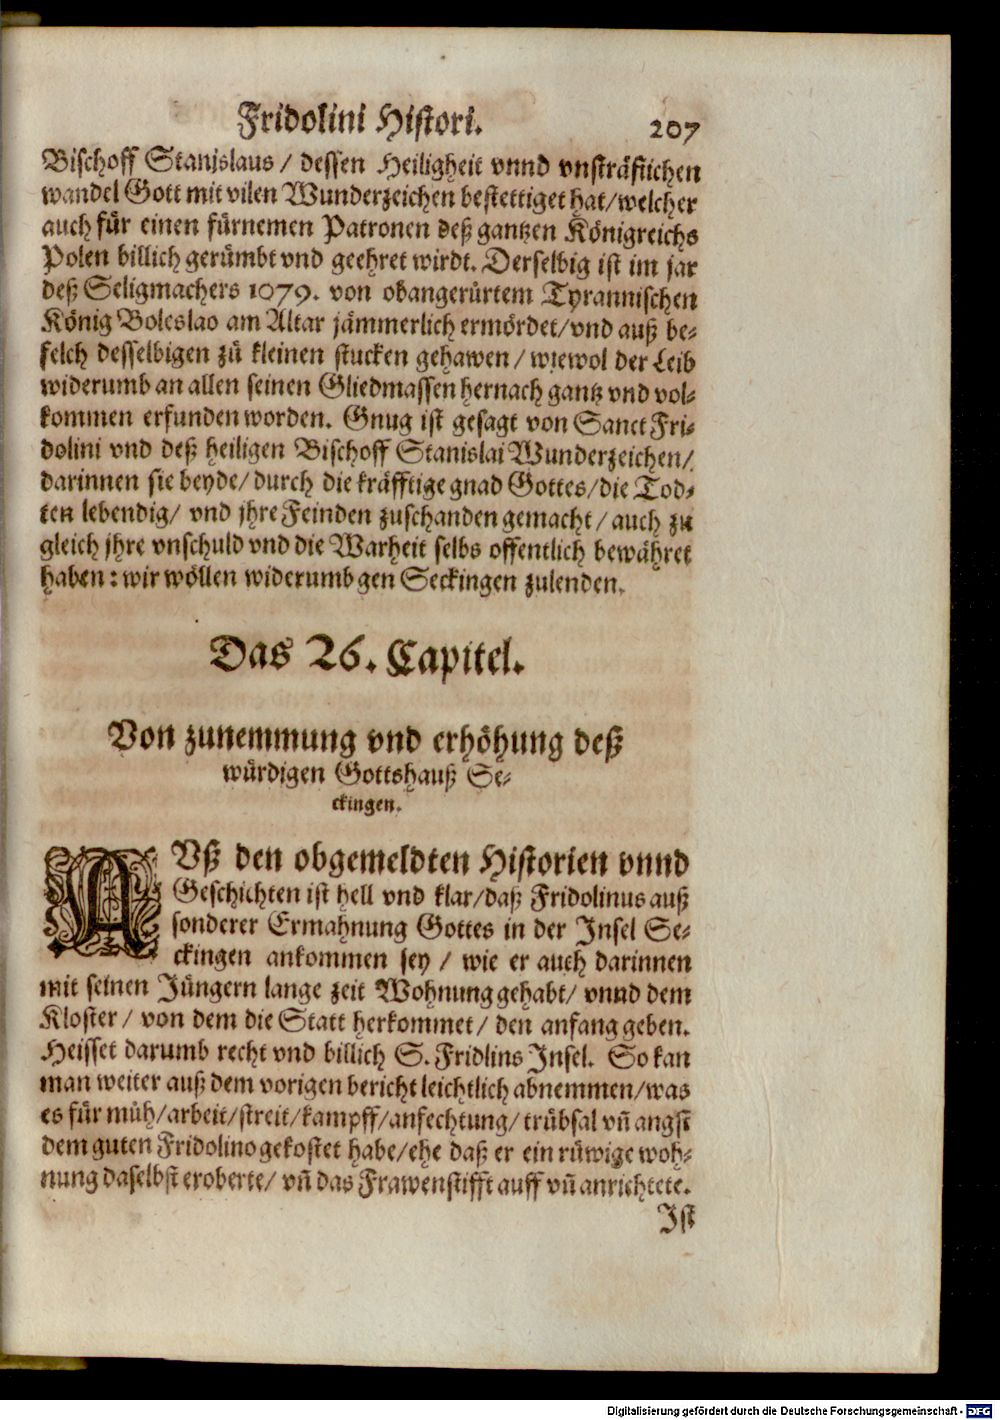 Fridolini Histori. 207
Bischoff Stanislaus / dessen Heiligheit vnnd vnsträflichen
wandel Gott mit vilen Wunderzeichen bestettiget hat/welcher
auch für einen fürnemen Patronen deß gantzen Königreichs
Polen billich gerümbt vnd geehret wirdt. Derselbig ist im jar
deß Seligmachers 1079. von obangerürtem Tyrannischen
König Boleslao am Altar jämmerlich ermördet/vnd auß be-
felch desselbigen zů kleinen stucken gehawen / wiewol der Leib
widerumb an allen seinen Gliedmassen hernach gantz vnd vol-
kommen erfunden worden. Gnug ist gesagt von Sanct Fri-
dolini vnd deß heiligen Bischoff Stanislai Wunderzeichen/
darinnen sie beyde/durch die kräfftige gnad Gottes/die Tod-
ten lebendig/ vnd jhre Feinden zuschanden gemacht / auch zu
gleich jhre vnschuld vnd die Warheit selbs offentlich bewähret
haben: wir wöllen widerumb gen Seckingen zulenden.
Das 26. Capitel.
Von zunemmung vnd erhöhung deß
würdigen Gottshauß Se-
ckingen.
AVß den obgemeldten Historien vnnd
Geschichten ist hell vnd klar/daß Fridolinus auß
sonderer Ermahnung Gottes in der Insel Se-
ckingen ankommen sey / wie er auch darinnen
mit seinen Jüngern lange zeit Wohnung gehabt/ vnnd dem
Kloster / von dem die Statt herkommet / den anfang geben.
Heisset darumb recht vnd billich S. Fridlins Insel. So kan
man weiter auß dem vorigen bericht leichtlich abnemmen/was
es für müh/arbeit/streit/kampff/anfechtung/trübsal vñ angst
dem guten Fridolino gekostet habe/ehe daß er ein rüwige woh-
nung daselbst eroberte/ vñ das Frawenstifft auff vñ anrichtete.
Ist
Digitalisierung gefördert durch die Deutsche Forschungsgemeinschaft - DFG